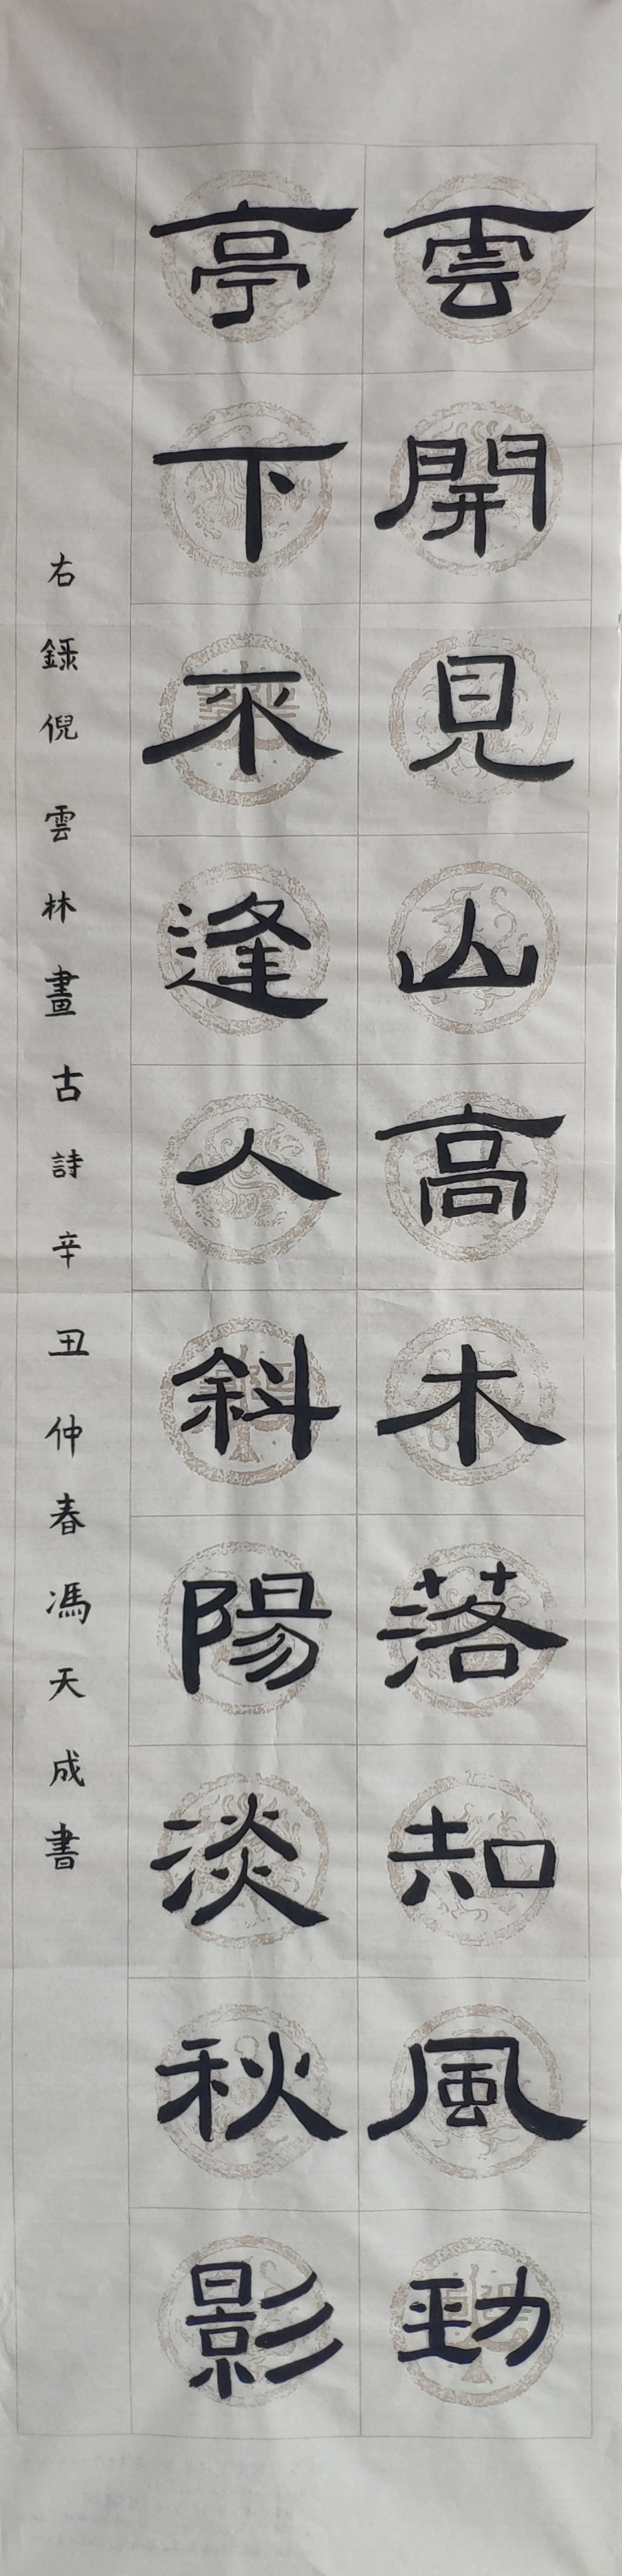 雲開見山高木落知風勁
亭下不逢人斜陽淡秋影
右錄倪雲林畫古詩辛丑仲春馮天成書